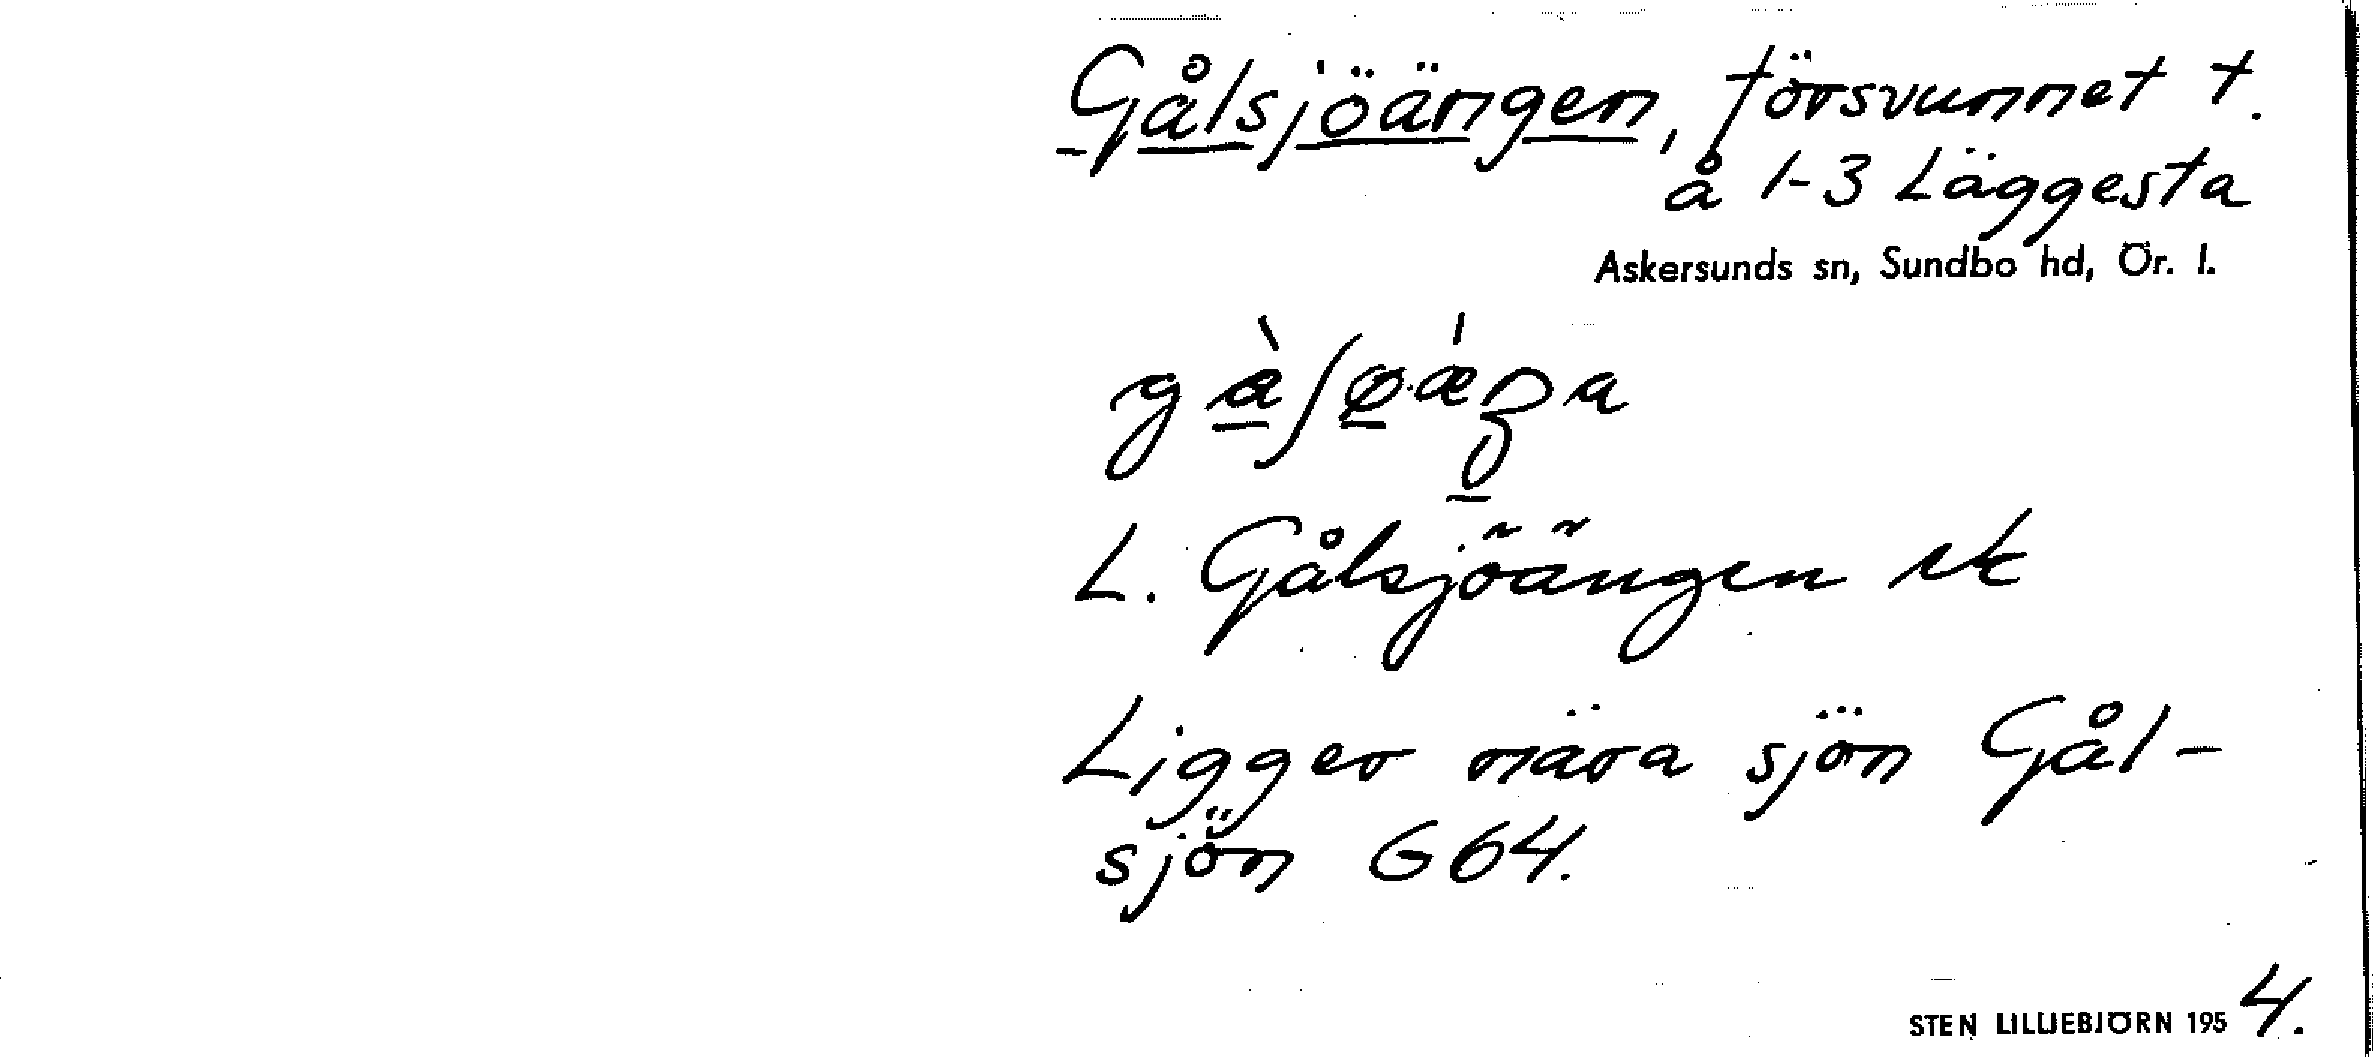 Gålsjöängen, försvunnet t.
å 1-3 Läggesta
Askersunds sn, Sundbo hd, Ör. l.
L. Gålsjöängen ek
Ligger nära sjön Gål-
sjön G64.
STEN LILLIEBJÖRN 1954.